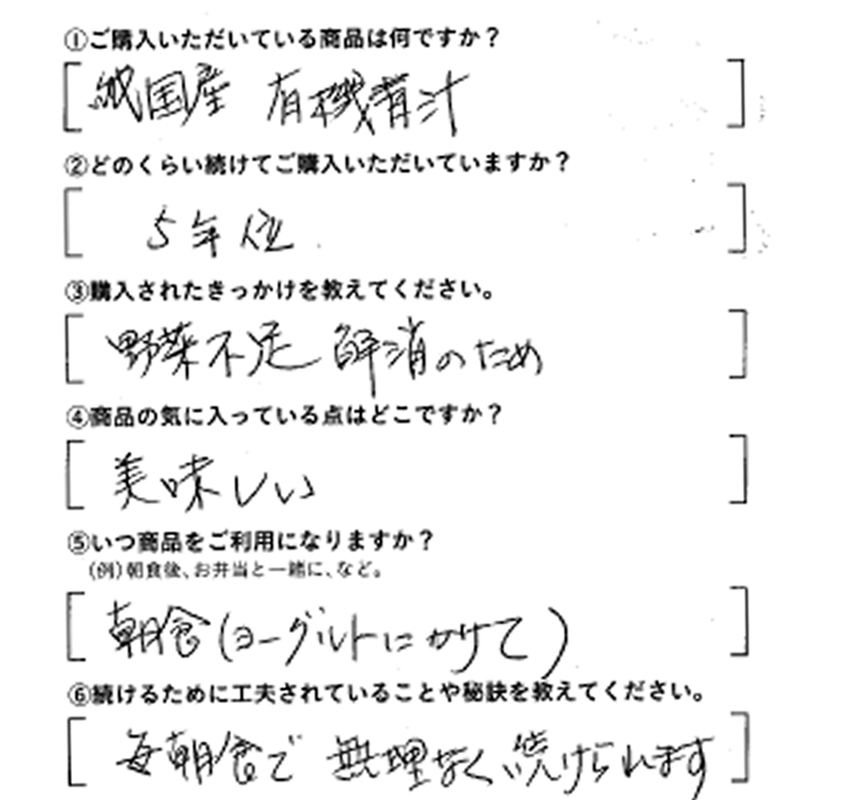 ①ご購入いただいている商品は何ですか?
[純国産 有機青汁]
②どのくらい続けてご購入いただいていますか?
[5年位]
③購入されたきっかけを教えてください。
[野菜不足 解消のため]
④商品の気に入っている点はどこですか?
[美味しい]
⑤いつ商品をご利用になりますか?
(例)朝食後、お弁当と一緒に、など。
[朝食(ヨーグルトにかけて)]
⑥続けるために工夫されていることや秘訣を教えてください。
[毎朝食で 無理なく続けられます]